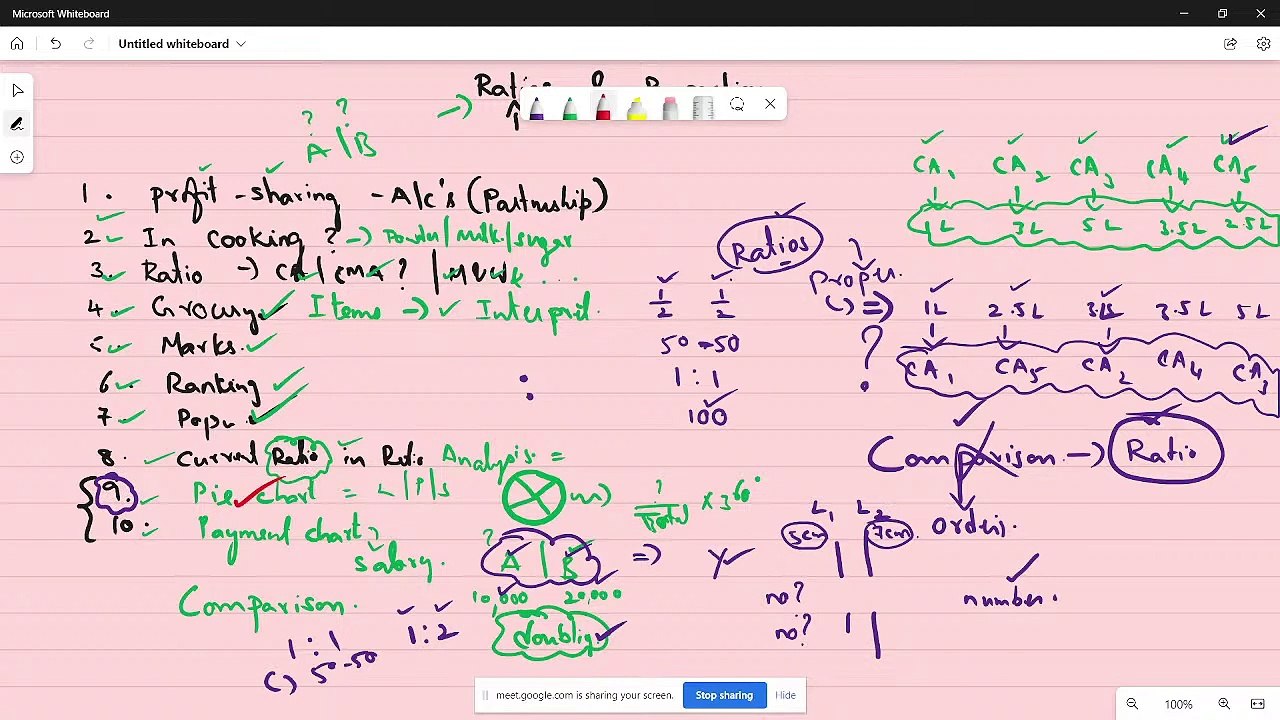 Microsoft Whiteboard
Untitled whiteboard
Ratios &
? ?
A | B
1. Profit - sharing - A/c's (Partnership)
2 In cooking? → /milk/sugar
3. Ratio → CA | CMA? | ...
4. Grocery Items → Interpret.
5 Marks.
6 Ranking
7 Popu.
8. Current Ratio in Ratio Analysis =
9. Pie chart = L|P|S
10. Payment chart,
salary.
? × 360°
Total
?
A | B ⇒ Y
10,000 20,000
doubling
Comparison.
1 : 1 1 : 2
50-50
Ratios
Propu.
1/2 1/2
50 - 50
1 : 1
100
() ⇒
?
CA1 CA2 CA3 CA4 CA5
1L 3L 5L 3.5L 2.5L
1L 2.5L 3L 3.5L 5L
CA1 CA5 CA2 CA4 CA3
Comparison → Ratio
orders.
number.
L1 L2
5cm 7cm
no?
no?
meet.google.com is sharing your screen. Stop sharing Hide
100%